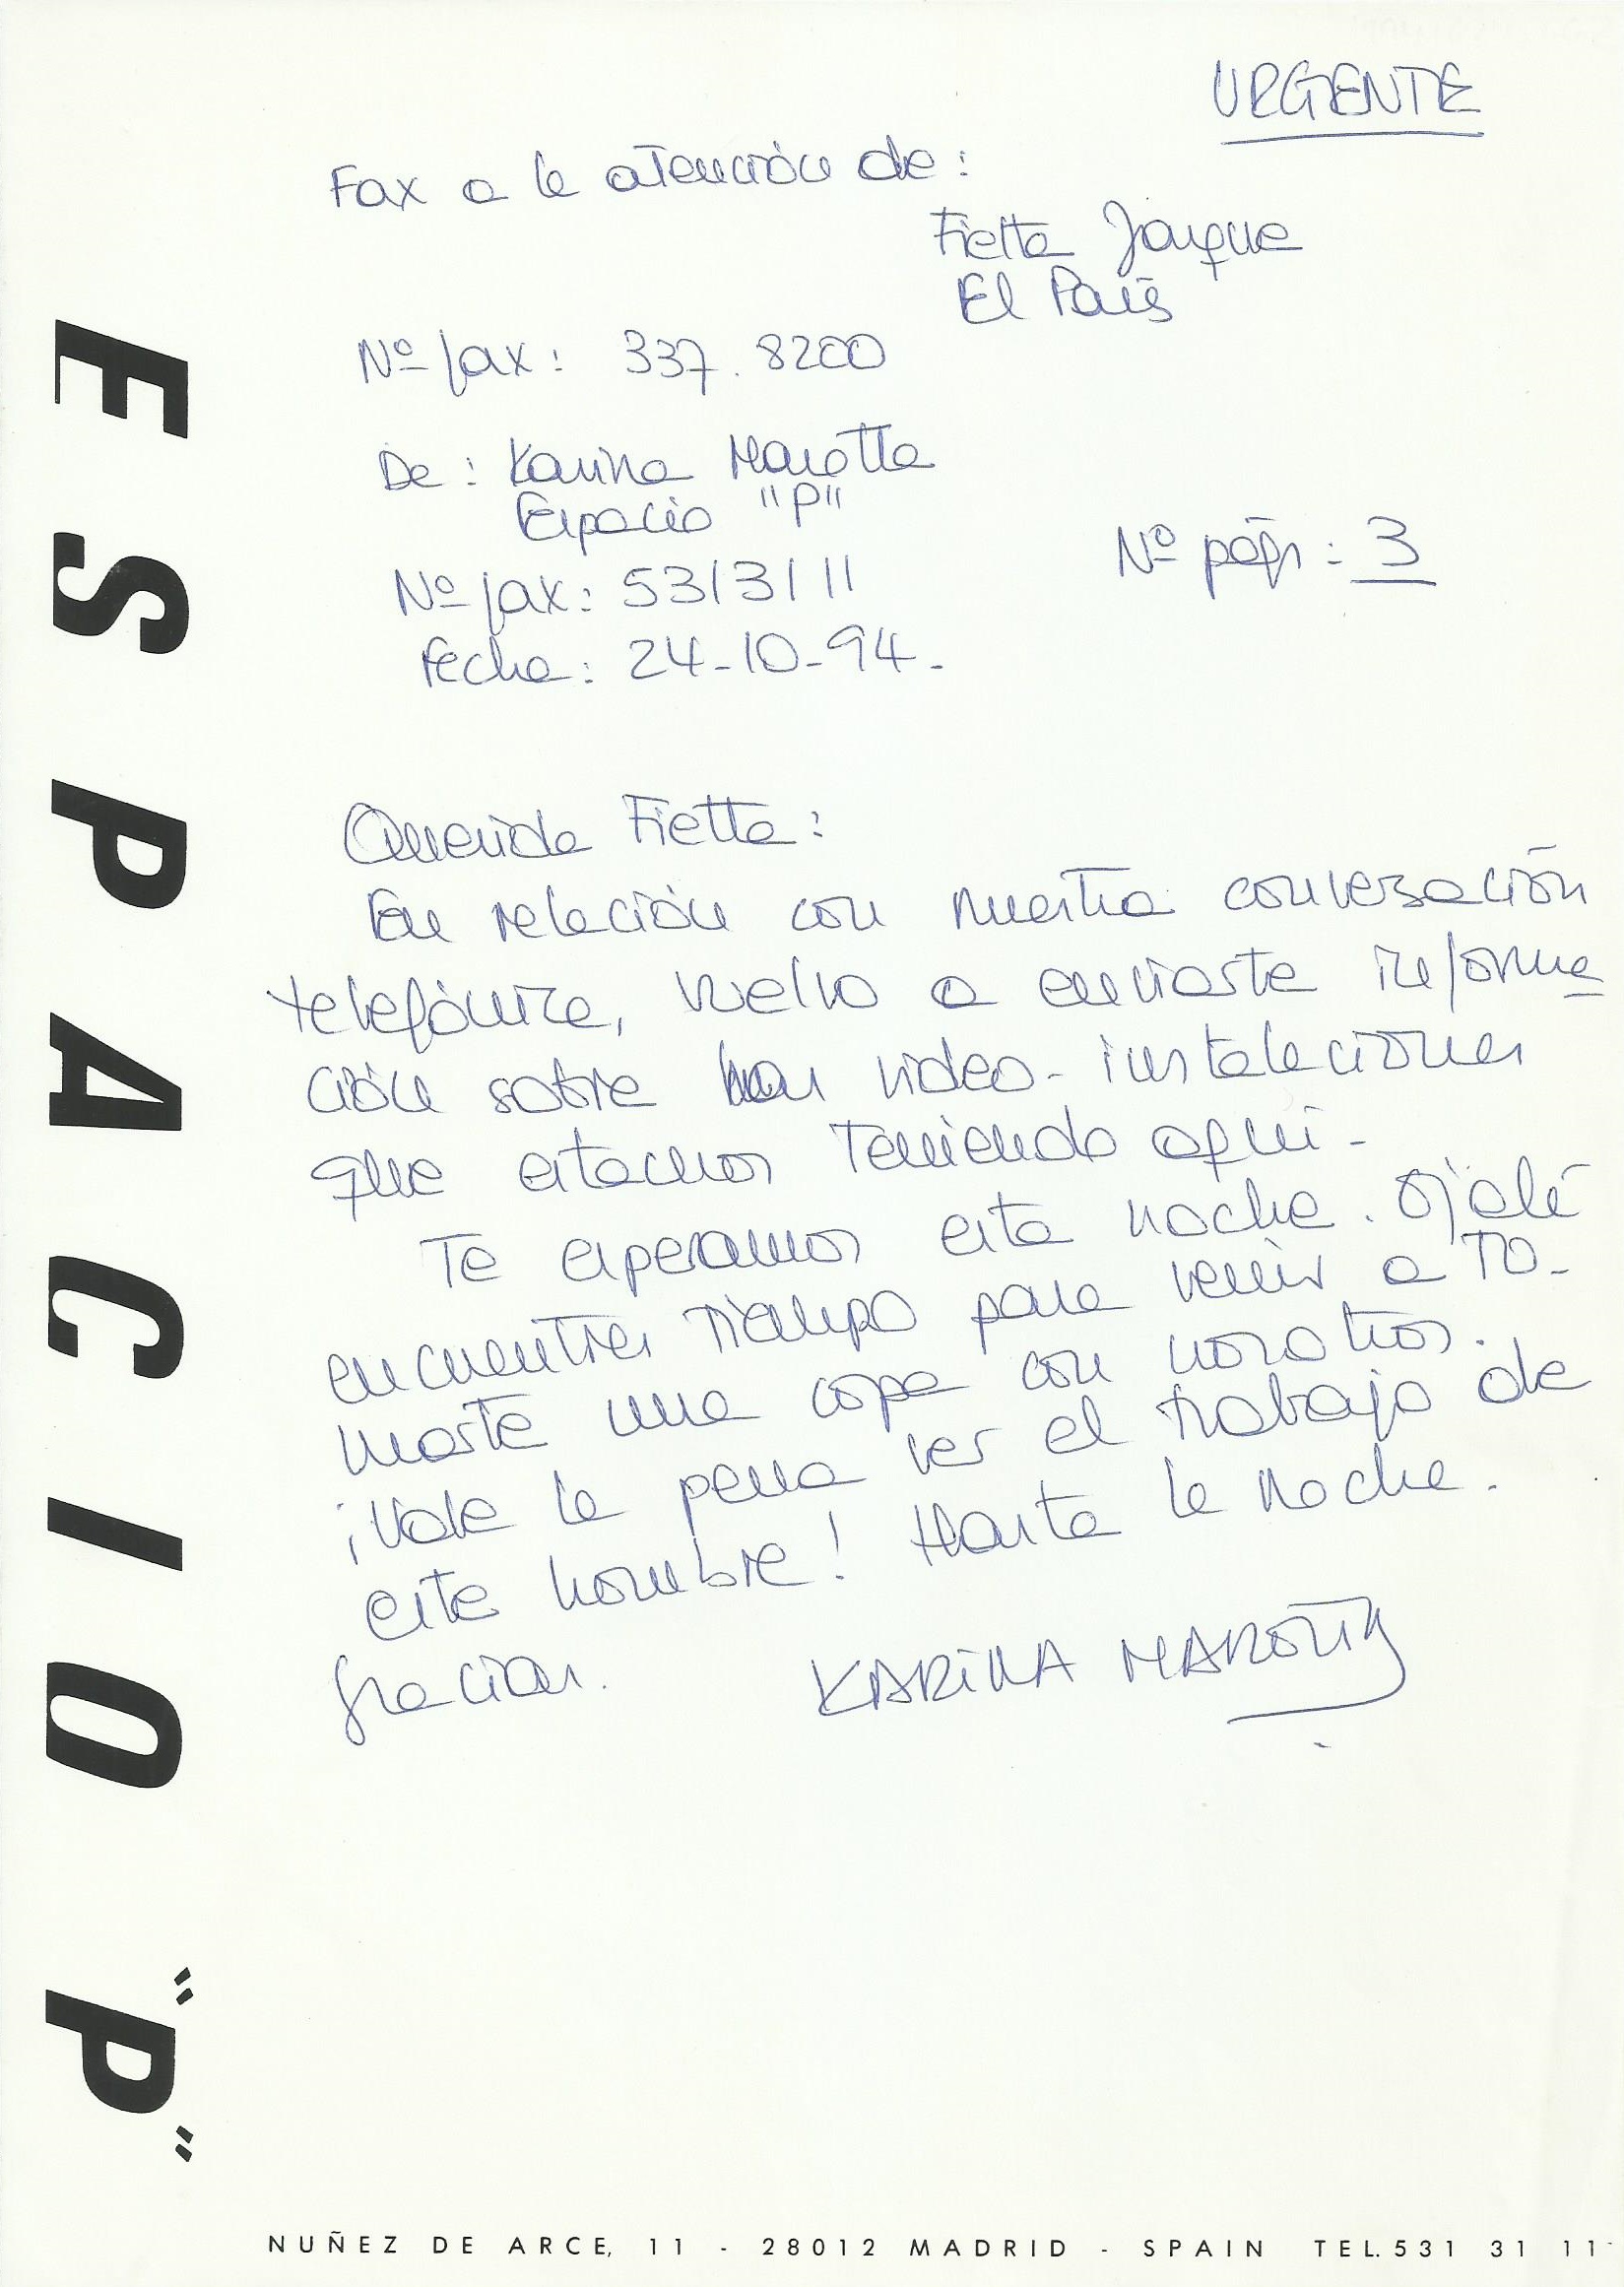 URGENTE
Fax a la atención de:
Fietta Jarque
El País
Nº fax: 337.8200
De: Karina Marotta
Espacio "P"
Nº págs: 3
Nº fax: 5313111
Fecha: 24-10-94.
Querida Fietta:
En relación con nuestra conversación
telefónica, vuelvo a enviarte informa
ción sobre las video-instalaciones
que estamos teniendo aquí-
Te esperamos esta noche. Ojalá
encuentres tiempo para venir a to-
marte una copa con nosotros.
¡Vale la pena ver el trabajo de
este hombre! Hasta la noche.
Gracias.
KARINA MAROTTA
ESPACIO "P"
NUÑEZ DE ARCE, 11 - 28012 MADRID - SPAIN TEL. 531 31 11